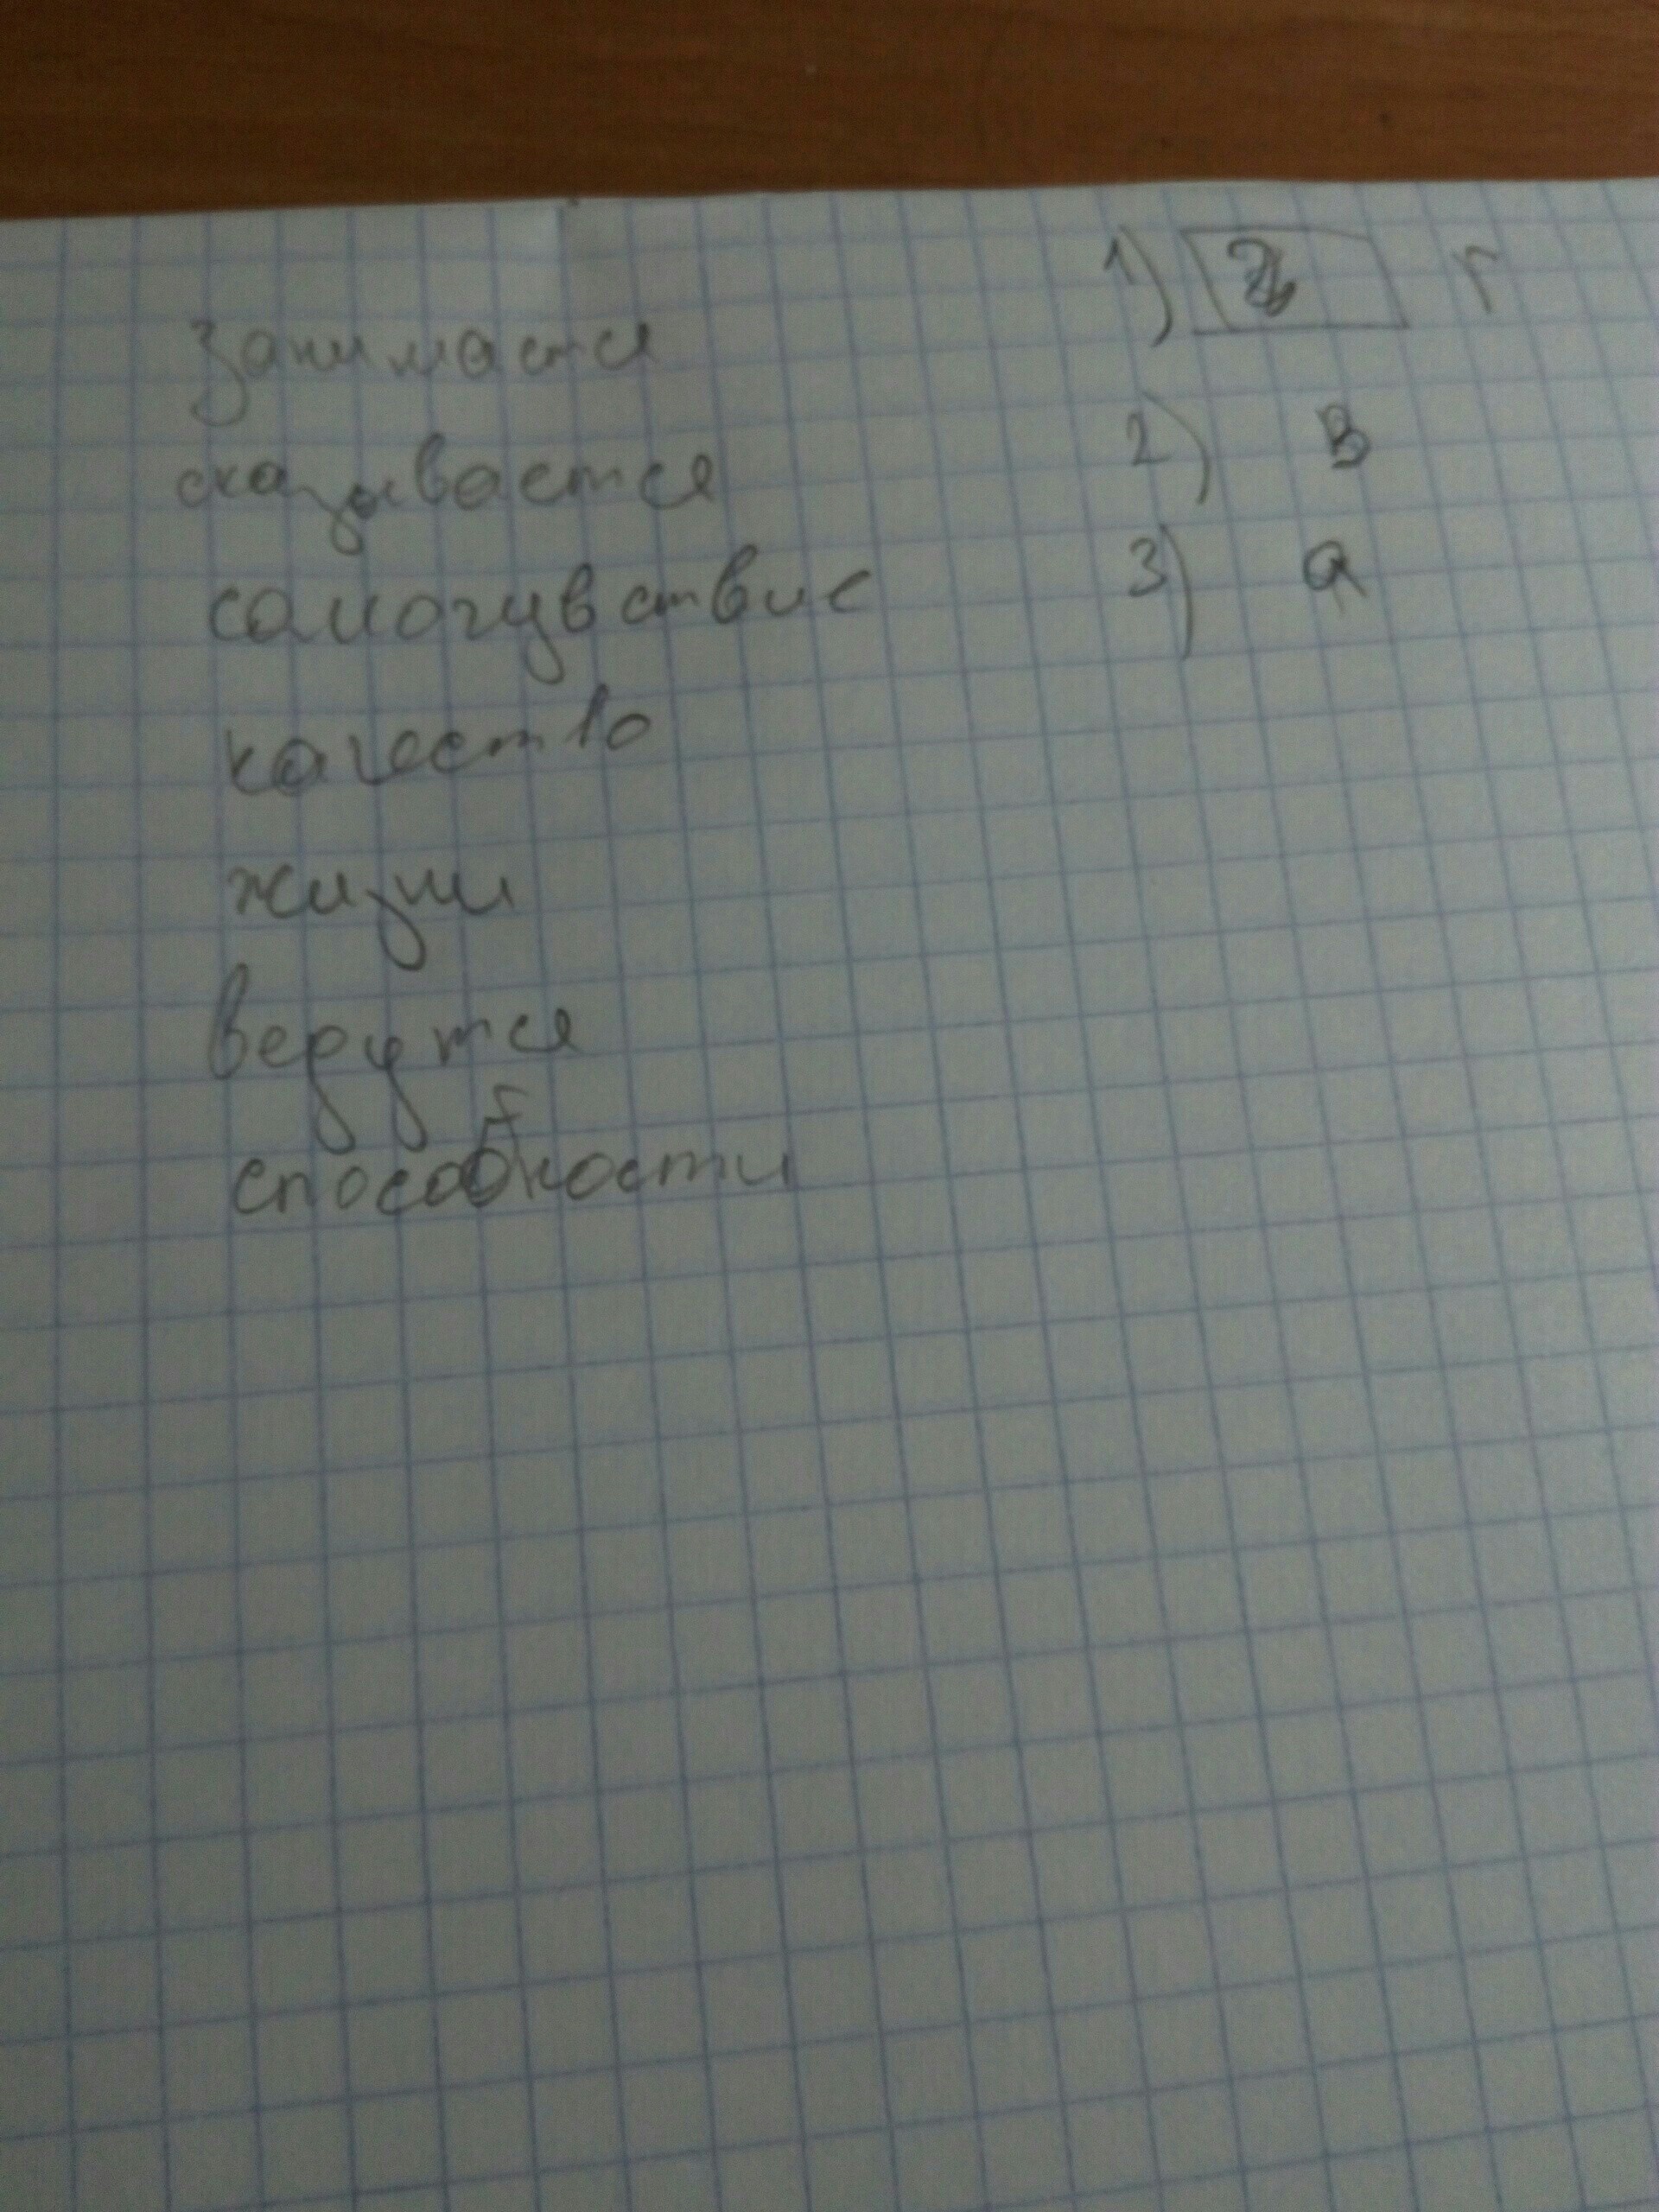 занимастся
сказывается
самочувствие
качество
жизни
верутся
способности
1) г
2) В
3) а